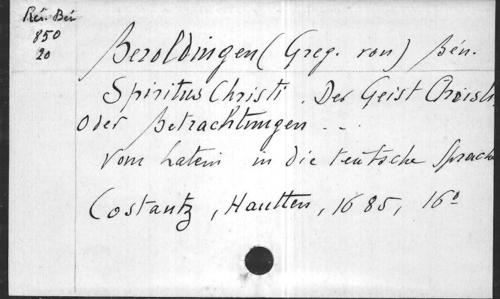 Rés. Bén
850
20
Beroldingen (Greg. von) Bén.
Spiritus Christi. Der Geist Christi
Oder Betrachtungen ...
vom Latein in die teutsche Sprache
Costantz, Hautten, 1685, 16°